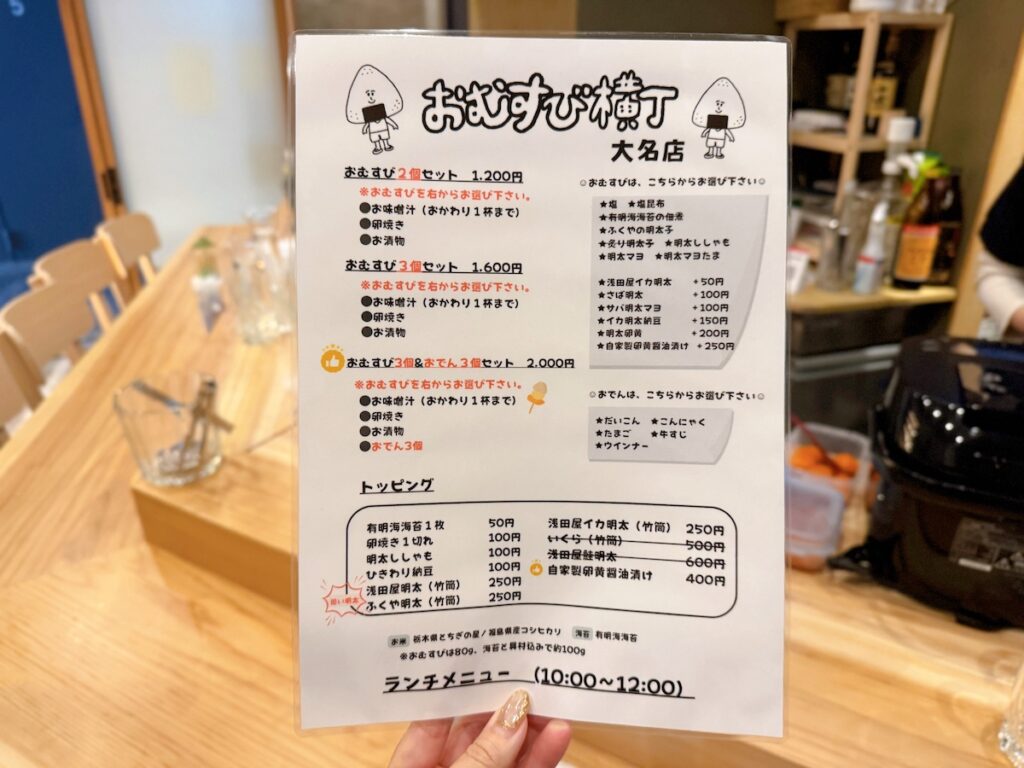 おむすび横丁
大名店
おむすび2個セット 1.200円
※おむすびを右からお選び下さい。
●お味噌汁（おかわり1杯まで）
●卵焼き
●お漬物
おむすび3個セット 1.600円
※おむすびを右からお選び下さい。
●お味噌汁（おかわり1杯まで）
●卵焼き
●お漬物
おむすび3個&おでん3個セット 2.000円
※おむすびを右からお選び下さい。
●お味噌汁（おかわり1杯まで）
●卵焼き
●お漬物
●おでん3個
☺おむすびは、こちらからお選び下さい☺
★塩 ★塩昆布
★有明海海苔の佃煮
★ふくやの明太子
★炙り明太子 ★明太ししゃも
★明太マヨ ★明太マヨたま
★浅田屋イカ明太 +50円
★さば明太 +100円
★サバ明太マヨ +100円
★イカ明太納豆 +150円
★明太卵黄 +200円
★自家製卵黄醤油漬け +250円
☺おでんは、こちらからお選び下さい☺
★だいこん ★こんにゃく
★たまご ★牛すじ
★ウインナー
トッピング
有明海海苔1枚 50円
卵焼き1切れ 100円
明太ししゃも 100円
ひきわり納豆 100円
浅田屋明太（竹筒） 250円
ふくや明太（竹筒） 250円
浅田屋イカ明太（竹筒） 250円
いくら（竹筒） 500円
浅田屋鮭明太 600円
自家製卵黄醤油漬け 400円
お米 栃木県とちぎの星/福島県産コシヒカリ 海苔 有明海海苔
※おむすびは80g、海苔と具材込みで約100g
ランチメニュー (10:00～12:00)